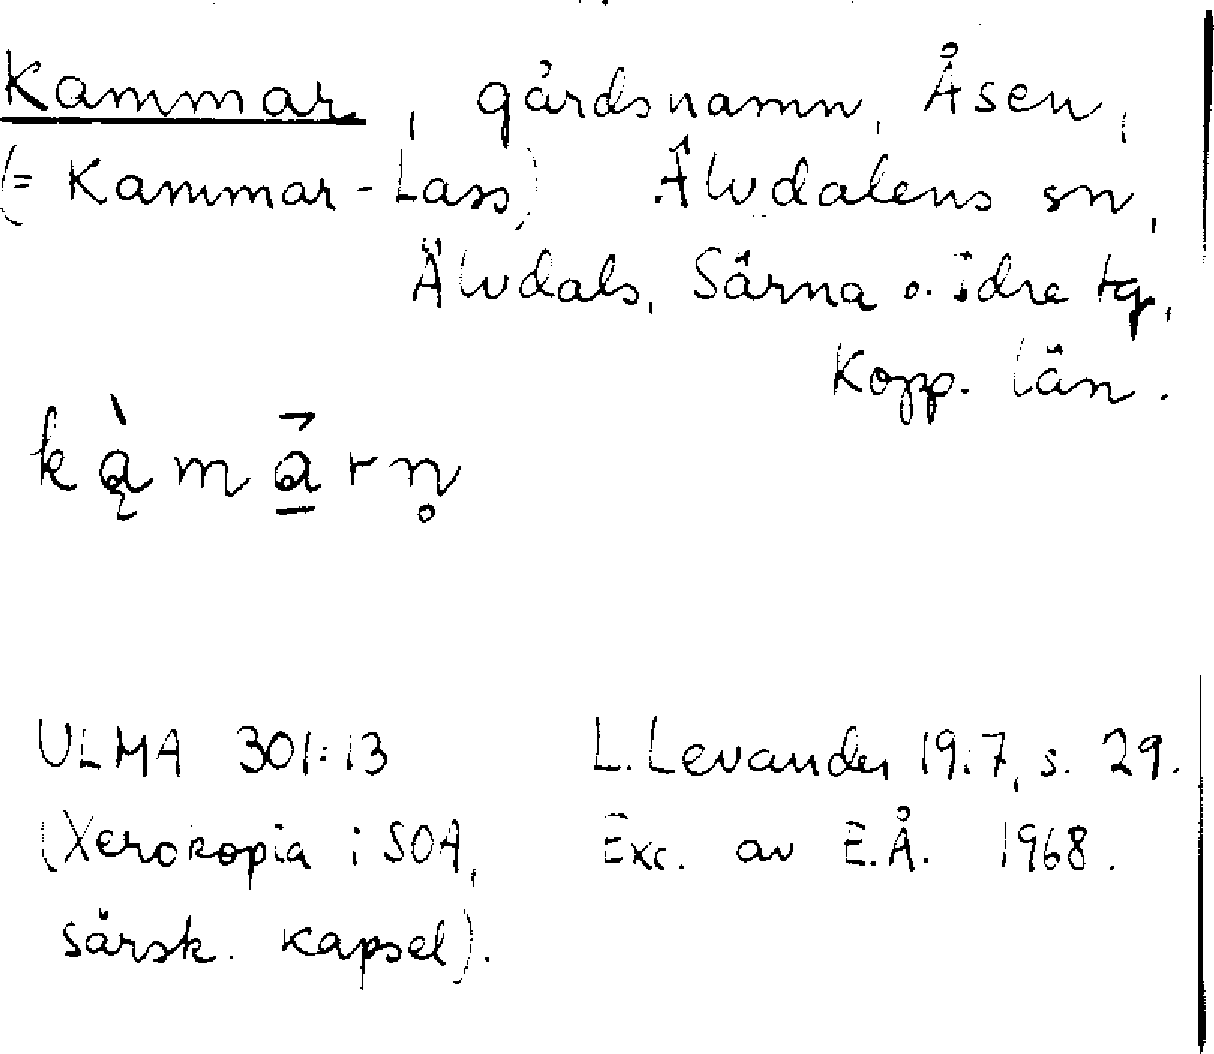 Kammar, gårdsnamn, Åsen,
(= Kammar-Lass) Älvdalens sn,
Älvdals, Särna o. Idre tg,
Kopp. län.
ką̀mā̱rn̥
ULMA 301:13 L. Levander 19:7, s. 29.
(Xerokopia i SOA, Exc. av E.Å. 1968.
särsk. kapsel).